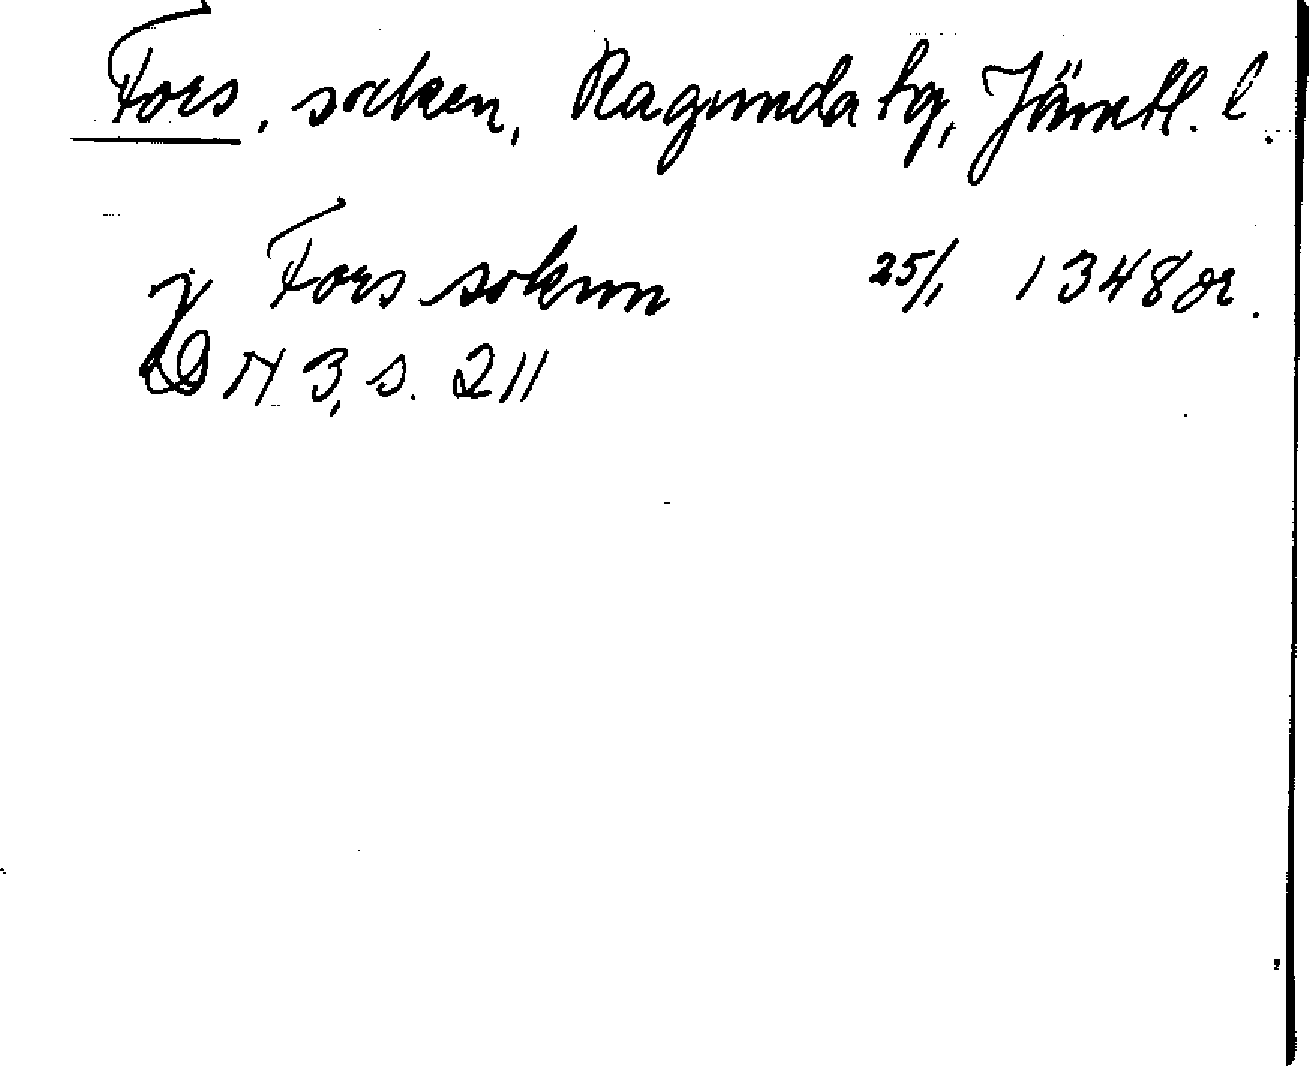 Fors, socken, Ragunda tg, Jämtl. l.
j Fors soknn 25/1 1348 or.
DN 3, s. 211